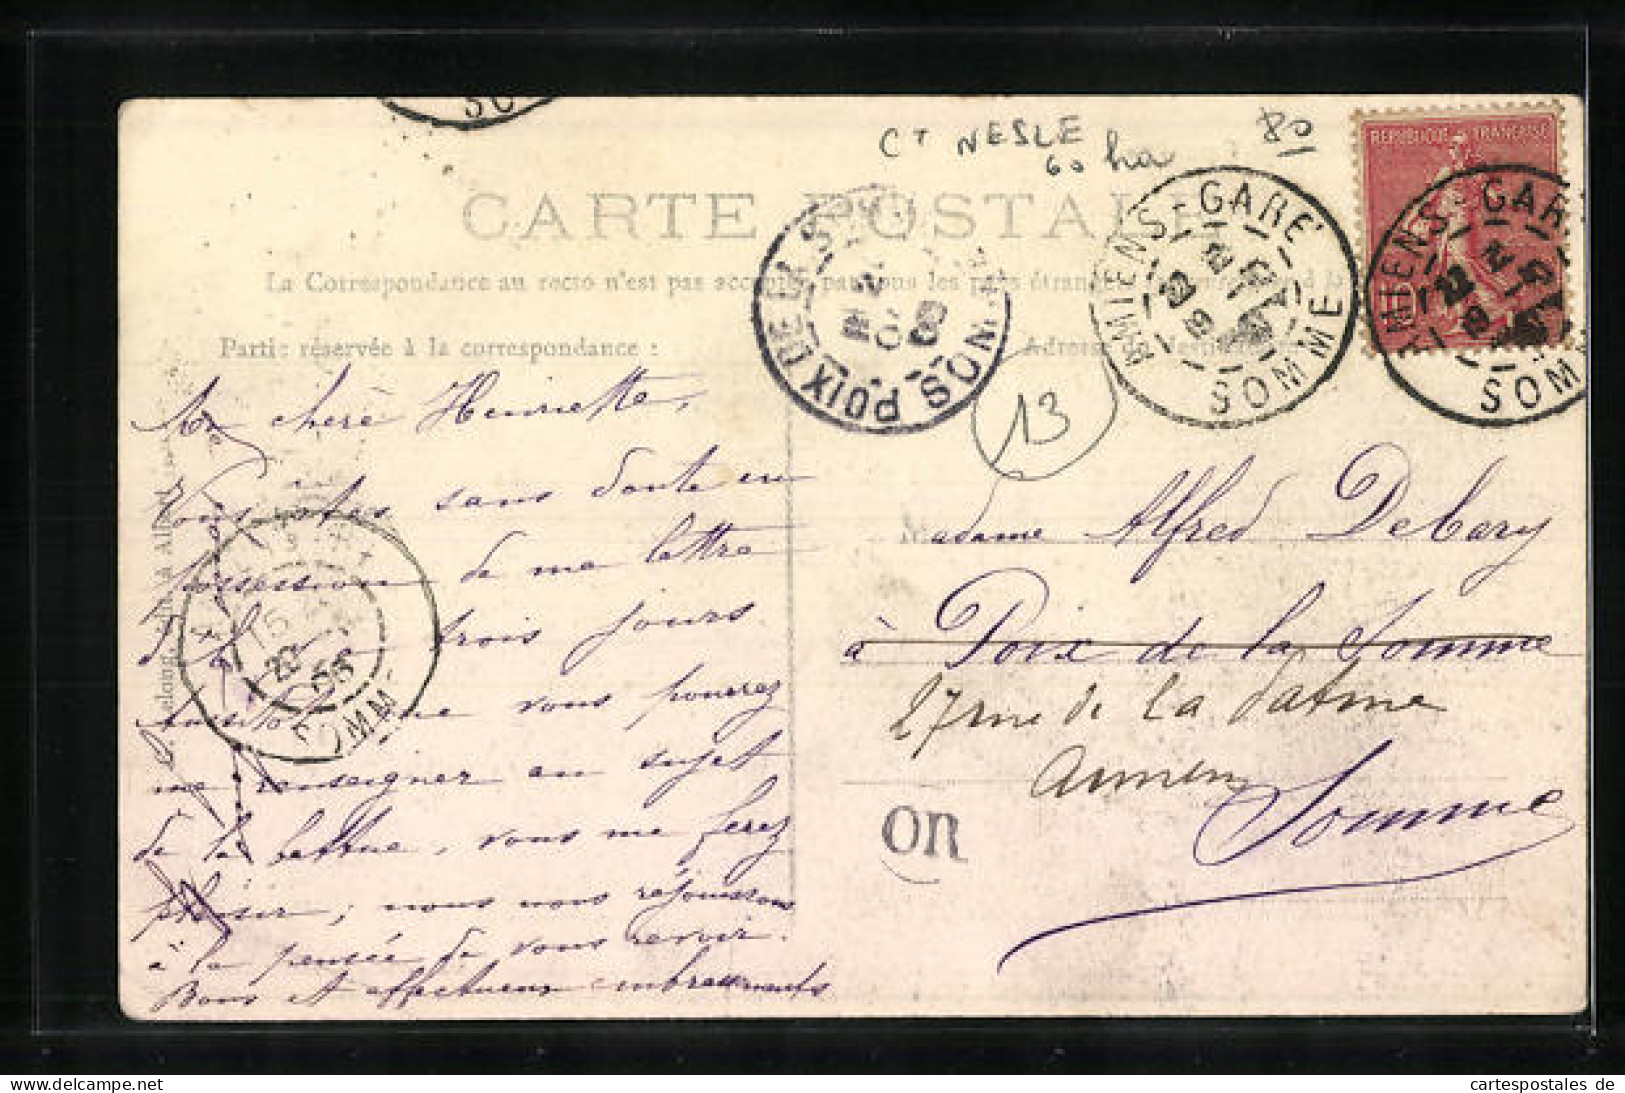 SO
Ct NESLE
60 ha
80
CARTE POSTALE
REPUBLIQUE FRANÇAISE
AMIENS-GARE
SOMME
AMIENS-GAR
SOM
POIX DE LA S
SOM
La Correspondance au recto n'est pas acceptée par tous les pays étrangers
Partie réservée à la correspondance :
Adresse du destinataire
13
Ma chère Henriette,
Vous êtes sans doute en
possession de ma lettre
trois jours.
Aussitôt que vous pourrez
me renseigner au sujet
de la lettre, vous me ferez
plaisir; nous nous réjouissons
à la pensée de vous revoir.
Bons et affectueux embrassements
Madame Alfred Debary
à Poix de la Somme
27 rue de La
Somme
OR
SOMM
cartespostales de